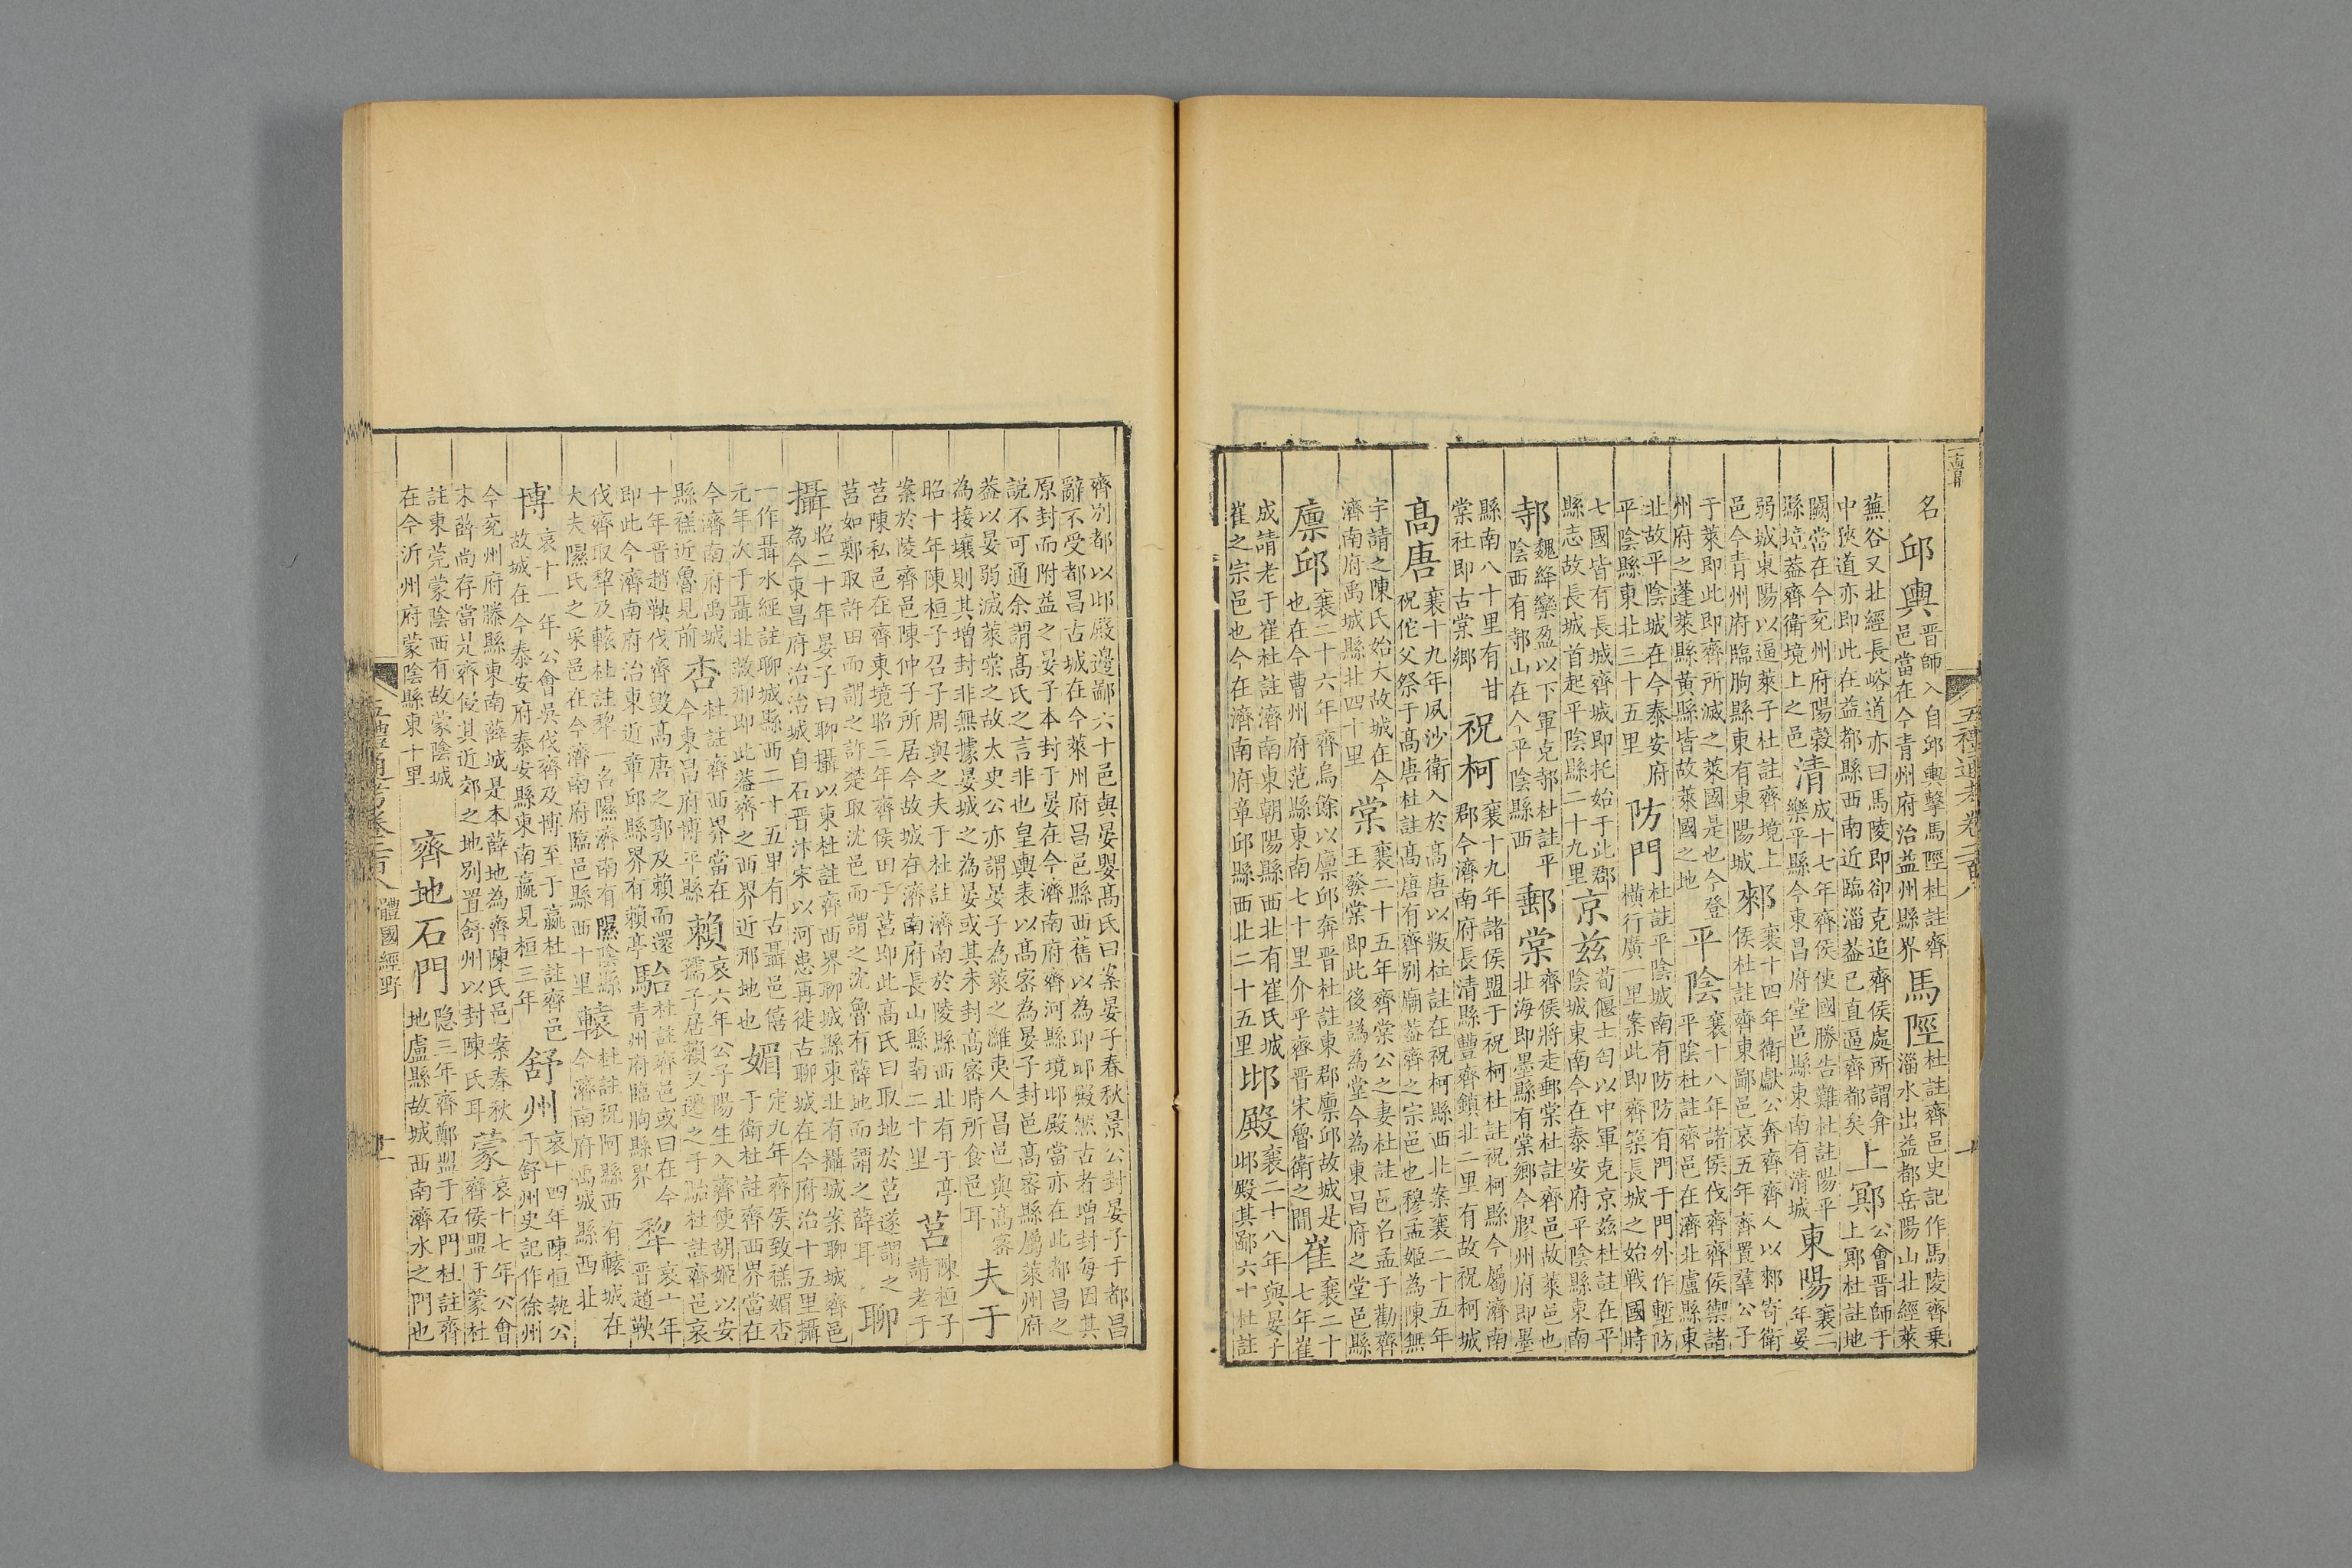 五禮通考卷二百八 十
名邱輿晋師入自邱輿擊馬陘杜註齊邑當在今青州府治益州縣界馬陘杜註齊邑史記作馬陵齊乗淄水出益都岳陽山北經萊
蕪谷又北經長峪道亦曰馬陵即卻克追齊侯處所謂弇中狹道亦即此在益都縣西南近臨淄葢已直逼齊都矣上鄍公會晋師于上鄍杜註地
闕當在今兖州府陽榖縣境葢齊衛境上之邑清成十七年齊侯使國勝告難杜註陽平樂平縣今東昌府堂邑縣東南有清城東陽襄二年晏
弱城東陽以逼萊子杜註齊境上邑今青州府臨朐縣東有東陽城郲襄十四年衛獻公奔齊齊人以郲寄衛侯杜註齊東鄙邑哀五年齊置羣公子
于萊即此即齊所滅之萊國是也今登州府之蓬萊縣黃縣皆故萊國之地平陰襄十八年諸侯伐齊齊侯禦諸平陰杜註齊邑在濟北盧縣東
北故平陰城在今泰安府平陰縣東北三十五里防門杜註平陰城南有防防有門于門外作塹防橫行廣一里案此即齊築長城之始戰國時
七國皆有長城齊城即托始于此郡縣志故長城首起平陰縣二十九里京兹荀偃士匄以中軍克京兹杜註在平陰城東南今在泰安府平陰縣東南
邿魏絳欒盈以下軍克邿杜註平陰西有邿山在今平陰縣西郵棠齊侯將走郵棠杜註齊邑故萊邑也北海即墨縣有棠鄉今膠州府即墨
縣南八十里有甘棠社即古棠鄉祝柯襄十九年諸侯盟于祝柯杜註祝柯縣今屬濟南郡今濟南府長清縣豐齊鎮北二里有故祝柯城
高唐襄十九年夙沙衛入於高唐以叛杜註在祝柯縣西北案襄二十五年祝佗父祭于高唐杜註高唐有齊别廟葢齊之宗邑也穆孟姬為陳無
宇請之陳氏始大故城在今濟南府禹城縣北四十里棠襄二十五年齊棠公之妻杜註邑名孟子勸齊王發棠即此後譌為堂今為東昌府之堂邑縣
廪邱襄二十六年齊烏餘以廪邱奔晋杜註東郡廪邱故城是也在今曹州府范縣東南七十里介乎齊晋宋魯衛之間崔襄二十七年崔
成請老于崔杜註濟南東朝陽縣西北有崔氏城崔之宗邑也今在濟南府章邱縣西北二十五里邶殿襄二十八年與晏子邶殿其鄙六十杜註
齊别都以邶殿邊鄙六十邑與晏嬰高氏曰案晏子春秋景公封晏子于都昌辭不受都昌古城在今萊州府昌邑縣西舊以為即邶殿然古者增封每因其
原封而附益之晏子本封于晏在今濟南府齊河縣境邶殿當亦在此都昌之說不可通余謂高氏之言非也皇輿表以高密為晏子封邑高密縣屬萊州府
葢以晏弱滅萊棠之故太史公亦謂晏子為萊之濰夷人昌邑與高密為接壤則其增封非無據晏城之為晏或其未封高密時所食邑耳夫于
昭十年陳桓子召子周與之夫于杜註濟南於陵縣西北有于亭案於陵齊邑陳仲子所居今故城在濟南府長山縣南二十里莒陳桓子請老于
莒陳私邑在齊東境昭三年齊侯田于莒即此高氏曰取地於莒遂謂之莒如鄭取許田而謂之許楚取沈邑而謂之沈魯有薛地而謂之薛耳聊
攝昭二十年晏子曰聊攝以東杜註齊西界聊城縣東北有攝城案聊城齊邑為今東昌府治治城自石晋汴宋以河患再徙古聊城在今府治十五里攝
一作聶水經註聊城縣西二十五里有古聶邑僖元年次于聶北救邢即此葢齊之西界近邢地也媚定九年齊侯致禚媚杏于衛杜註齊西界當在
今濟南府禹城縣禚近魯見前杏杜註齊西界當在今東昌府博平縣賴哀六年公子陽生入齊使胡姬以安孺子居賴又遷之于駘杜註齊邑哀
十年晋趙鞅伐齊毁高唐之郭及賴而還即此今濟南府治東近章邱縣界有賴亭駘杜註齊邑或曰在今青州府臨朐縣界犁哀十年晋趙鞅
伐齊取犂及轅杜註犂一名隰濟南有隰陰縣大夫隰氏之采邑在今濟南府臨邑縣西十里轅杜註祝阿縣西有轅城在今濟南府禹城縣西北
博哀十一年公會吳伐齊及博至于嬴杜註齊邑故城在今泰安府泰安縣東南嬴見桓三年舒州哀十四年陳恒執公于舒州史記作徐州
今兖州府滕縣東南薛城是本薛地為齊陳氏邑案春秋末薛尚存當是齊侵其近郊之地别置舒州以封陳氏耳蒙哀十七年公會齊侯盟于蒙杜
註東莞蒙陰西有故蒙陰城在今沂州府蒙陰縣東十里齊地石門隐三年齊鄭盟于石門杜註齊地盧縣故城西南濟水之門也
五禮通考卷二百八 體國經野 十一